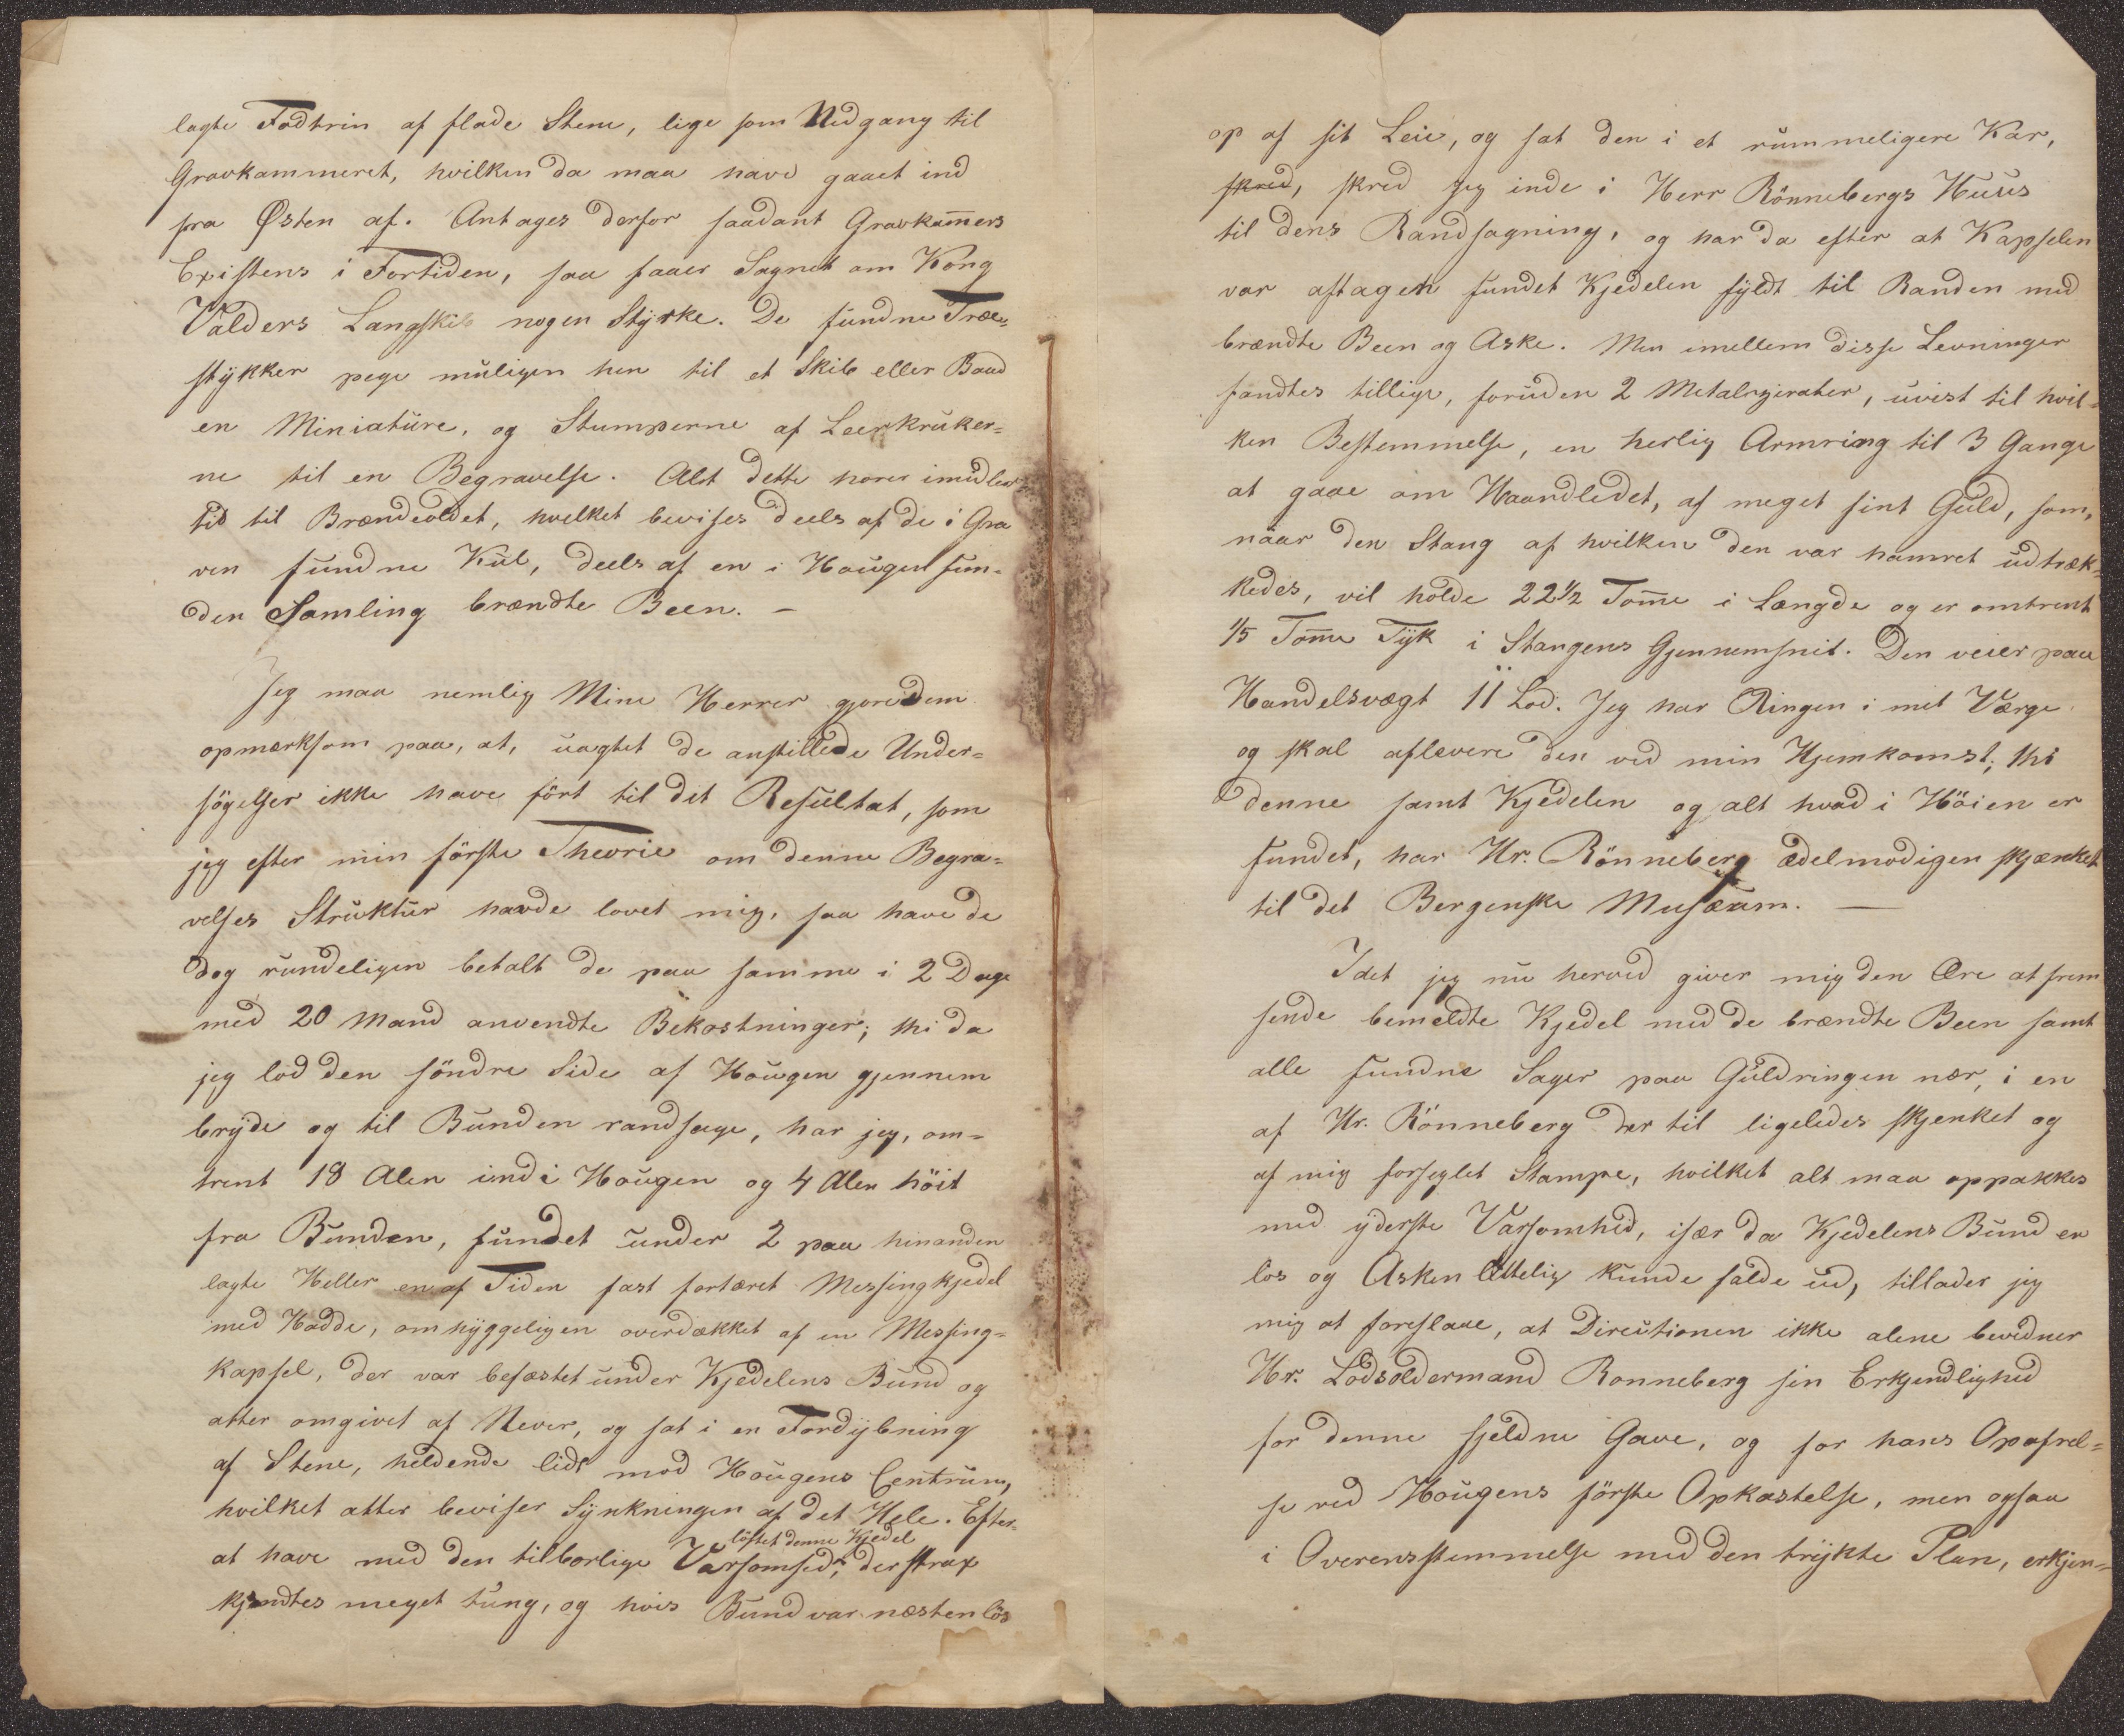 lagte Fodtrin af flade Stene, lige som Nedgang til
Gravkammeret, hvilken da maa have gaaet ind
fra Østen af. Antages derfor saadant Gravkam̅ers
Existens i Fortiden, saa faaer Sagnet om Kong
Valders Langskib nogen Styrke. De fundne Træe-
stykker pege muligen hen til et Skib eller Baad
en Miniature, og Stumperne af Leerkruker-
ne til en Begravelse. Alt dette horer imidler-
tid til Brændeoldet, hvelket bevises deels af de i Gra
ven fundne Kul, deels af en i Hougen fun-
den Samling brændte Been. –
Jeg maa nemlig Mine Herrer gjore dem
opmærksom paa, at, uagtet de anstillede Under-
sögelser ikke have fört til det Resultat, som
jeg efter min förste Theorie om denne Begra-
velses Struktur havde lovet mig, saa have de
dog rundeligen betalt de paa samme i 2 Dage
med 20 Mand anvendte Bekostninger; thi da
jeg lod den söndre Side af Hougen gjennem
bryde og til Bunden randsage, har jeg, om-
trent 18 Alen ind i Hougen og 4 Alen höit
fra Bunden, fundet under 2 paa hinanden
lagte Heller en af Tiden fast fortæret Messingkjedel
med Hadde, omhyggeligen overdækket af en Messing-
kapsel, der var befæstet under Kjedelens Bund og
atter omgivet af Never, og sat i en Fordybning
af Stene, heldende lidt mod Hougens Centrum,
hvilket atter beviser Synkningen af det Hele. Efter-
löftet denne Kjedel
at have med den tilborlige Varsomhed, der strax
kjendtes meget tung, og hvis Bund var næsten lös
op af sit Leie, og sat den i et rummeligere Kar,
skred, skred jeg inde i Herr Rönnebergs Huus
til dens Randsagning, og har da efter at Kapselen
var aftagen fundet Kjedelen fyldt til Randen med
brændte Been og Aske. Men imellem disse Levninger
fandtes tillige, foruden 2 Metalzirater, uvist til hvil-
ken Bestemmelse, en herlig Armring til 3 Gange
at gaae om Haandledet, af meget fint Guld, som,
näar den Stang af hvilken den var hamret udtræk-
kedes, vil holde 22½ Tom̅e i Længde og er omtrent
1/5 Tom̅e Tyk i Stangens Gjennemsnit. Den veier paa
Handelsvægt 11 Lod. Jeg har Ringen i mit Værge
og skal aflevere den ved min Hjemkomst; thi
denne samt Kjedelen og alt hvad i Höien er
fundet, har Hr. Rönneberg ædelmodigen skjænket
til det Bergenske Musæum. —
Idet jeg nu herved giver mig den Ære at frem
sende bemeldte Kjedel med de brændte Been samt
alle fundne Sager paa Guldringen nær, i en
af Hr. Rönneberg der til ligeledes skjenket og
af mig forseglet Stampe, hvilket alt maa oppakkes
med yderste Varsomhed, især da Kjedelens Bund er
los og Asken lettelig kunde falde ud, tillader jeg
mig at foreslaae, at Directionen ikke alene bevidner
Hr. Lodsoldermand Ronneberg sin Erkjendlighed
for denne sjeldne Gave, og for hans Opofrel-
se ved Hougens förste Opkastelse, men ogsaa
i Overensstemmelse med den trykte Plan, erkjen-